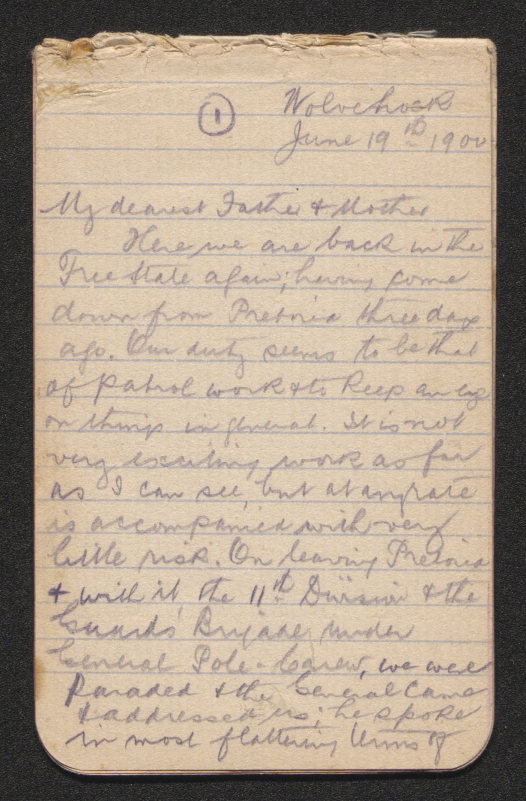 1
Wolvehoek
June 19th 1900
My dearest Father & Mother
Here we are back in the
Free State again; having come
down from Pretoria three days
ago. Our duty seems to be that
of patrol work & to keep an eye
on things in general. It is not
very exciting work as far
as I can see, but at anyrate
is accompanied with very
little risk. On leaving Pretoria
& with it the 11th Division & the
Guards' Brigade, under
General Pole-Carew, we were
paraded & the General came
& addressed us; he spoke
in most flattering terms of